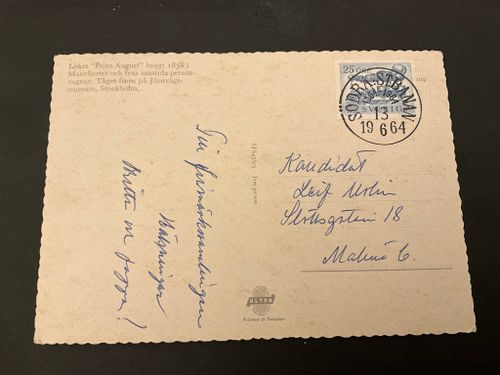 Loket "Prins August" byggt 1856 i
Manchester och fyra samtida person-
vagnar. Tåget finns på Järnvägs-
museum, Stockholm.
25 ÖRE
SVERIGE
SÖDRA STBANAN
1864-1964
13
19 6 64
Kandidat
Leif Molin
Slottsgatan 18
Malmö C.
Till frimärkssamlingen
Hälsningar
ULTRA
Printed in Sweden